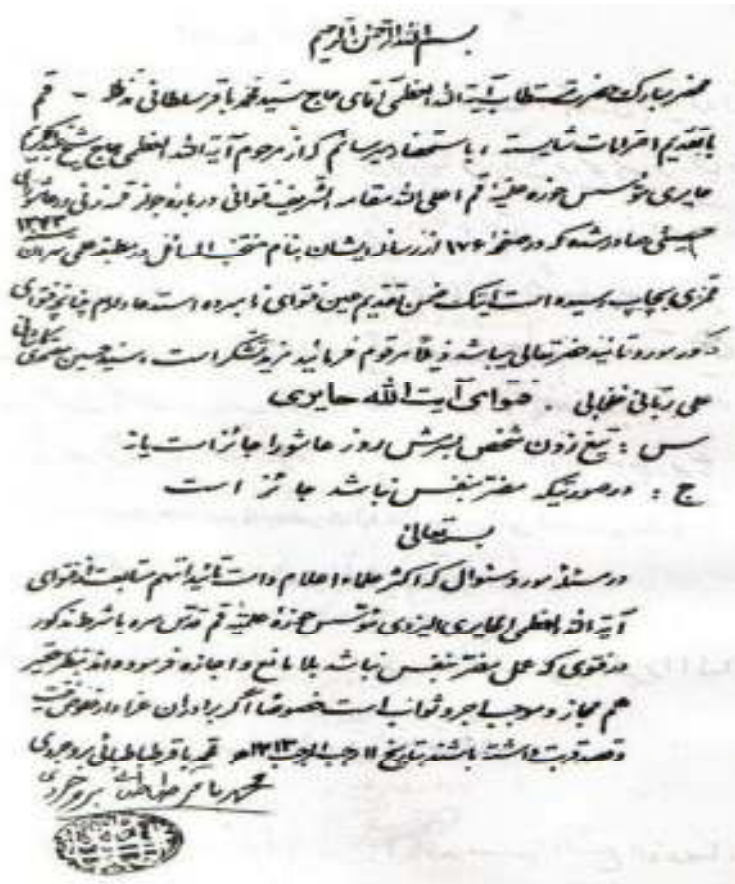 بسم الله الرحمن الرحیم
محضر مبارک حضرت مستطاب آیة الله العظمی آقای حاج سید محمد باقر سلطانی مدظله - قم
با تقدیم احترامات شایسته ، باستحضار میرسانم که از مرحوم آیة الله العظمی حاج شیخ عبدالکریم
حایری مؤسس حوزه علمیه قم اعلی الله مقامه الشریف فتوائی درباره جواز قمه زنی در عاشورای
حسینی صادر شده که در صفحه ۱۷۶ از رساله ایشان بنام منتخب المسائل در مطبعه علمی تهران ۱۳۴۳
قمری بچاپ رسیده است اینک ضمن تقدیم عین فتوای نامبرده استدعا دارم چنانچه فتوای
مذکور مورد تائید حضرتعالی میباشد ذیلاً مرقوم فرمائید مزید تشکر است . سید حسین
علی ربانی خلخالی . فتوای آیت الله حایری
س : تیغ زدن شخص بسرش روز عاشورا جائز است یا نه
ج : در صورتیکه مضر بنفس نباشد جائز است
بسمه تعالی
در مسئله مورد سئوال که اکثر علماء اعلام دامت تائیداتهم متابعت از فتوای
آیة الله العظمی الحایری الیزدی مؤسس حوزه علمیه قم قدس سره با شرط مذکور
در فتوی که عمل مضر بنفس نباشد بلا مانع و اجازه فرموده اند بنظر حقیر
هم مجاز و موجب اجر و ثواب است خصوصاً اگر برادران عزادار خلوص نیت
و قصد قربت داشته باشند بتاریخ ۱۱ رجب المرجب ۱۴۱۳ هـ محمد باقر طباطبائی بروجردی
محمد باقر طباطبائی بروجردی